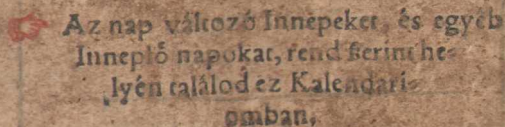 ☞ Az nap változó Innepeket, és egyéb
Inneplő napokat, rend ſzerint he-
lyén találod ez Kalendari-
omban,